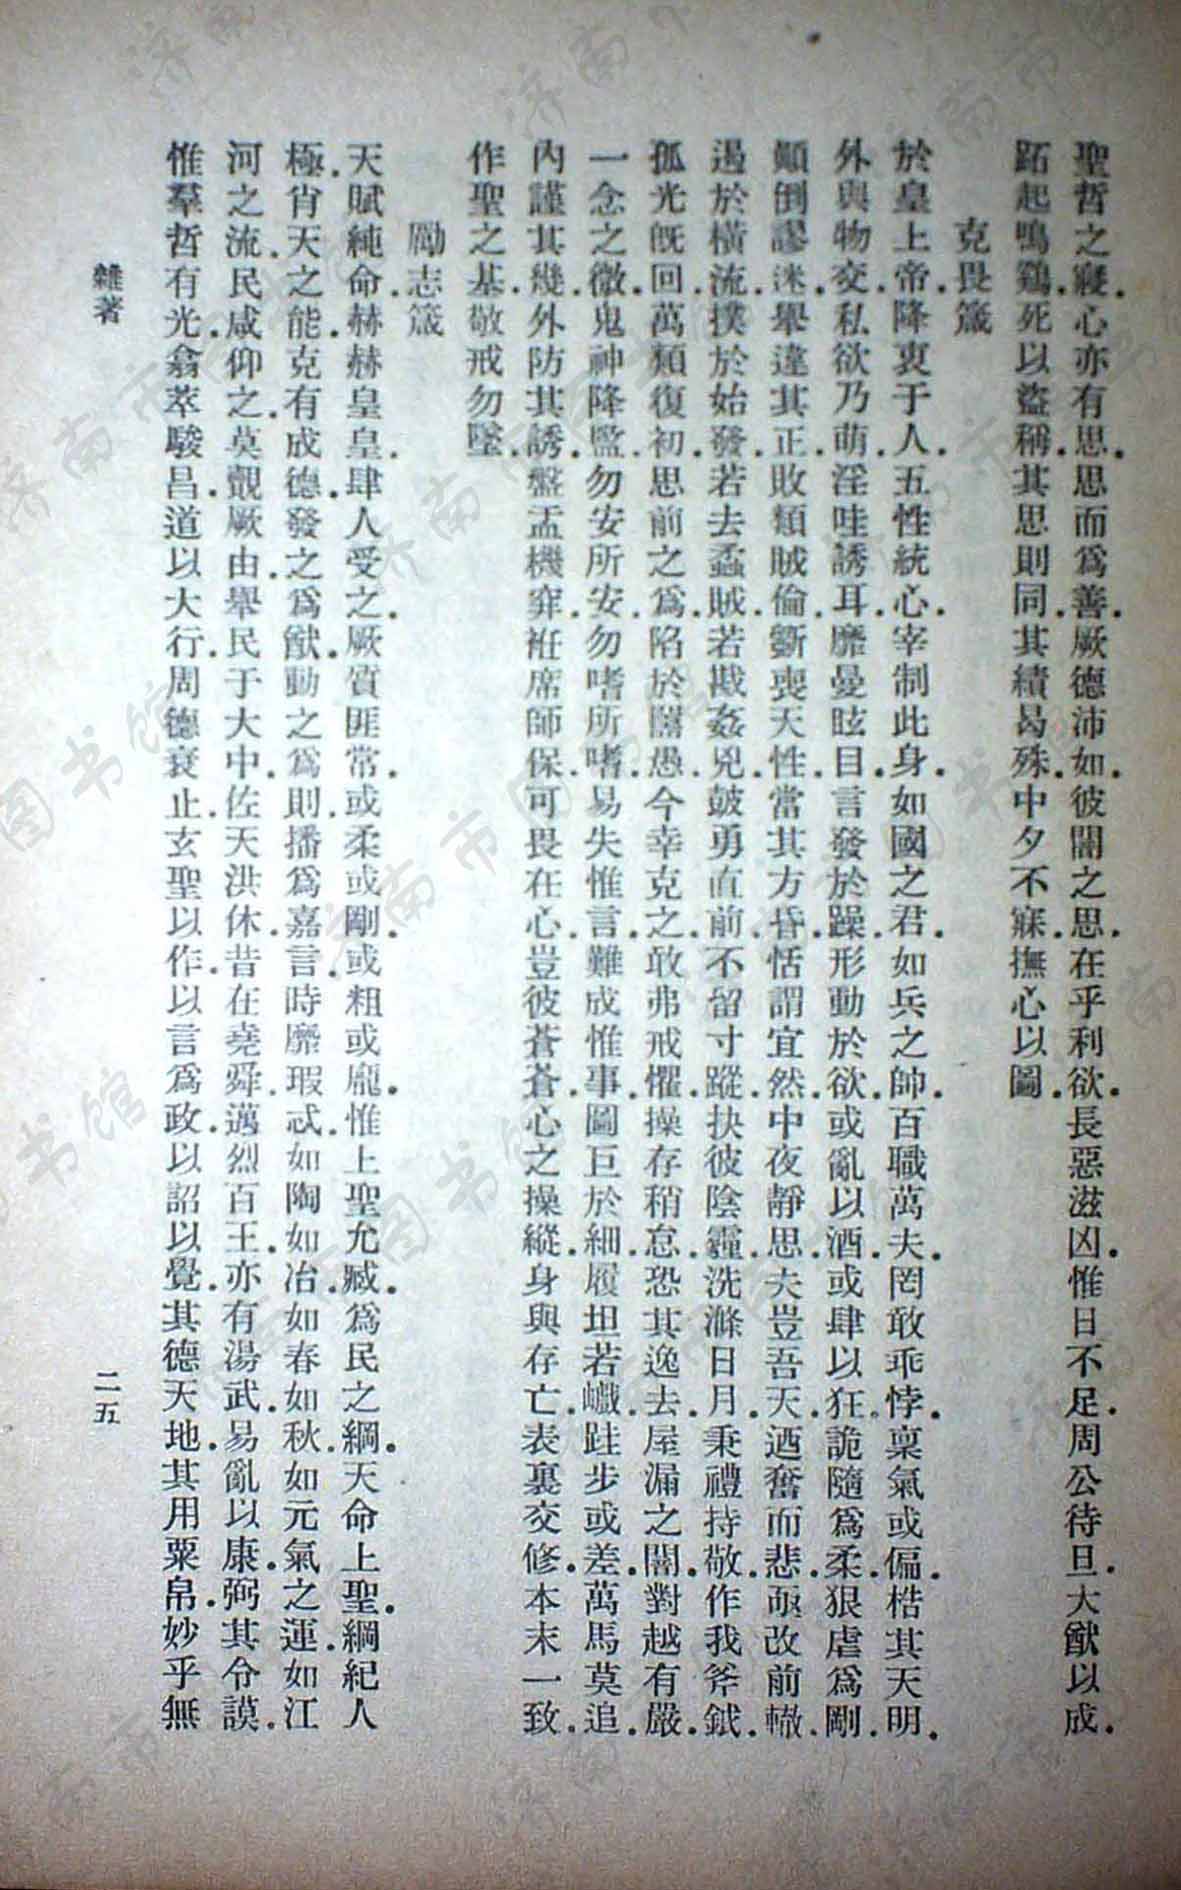 聖哲之寢.心亦有思.思而爲善.厥德沛如.彼闇之思.在乎利欲.長惡滋凶.惟日不足.周公待旦.大猷以成.
跖起鳴鷄.死以盜稱.其思則同.其績曷殊.中夕不寐.撫心以圖.
克畏箴
於皇上帝.降衷于人.五性統心.宰制此身.如國之君.如兵之帥.百職萬夫.罔敢乖悖.稟氣或偏.梏其天明.
外與物交.私欲乃萌.淫哇誘耳.靡曼眩目.言發於躁.形動於欲.或亂以酒.或肆以狂.詭隨爲柔.狠虐爲剛.
顛倒謬迷.舉違其正.敗類賊倫.斵喪天性.當其方昏.恬謂宜然.中夜靜思.夫豈吾天.迺奮而悲.亟改前轍.
遏於橫流.撲於始發.若去蟊賊.若戡姦兇.鼓勇直前.不留寸蹤.抉彼陰霾.洗滌日月.秉禮持敬.作我斧鉞.
孤光旣回.萬類復初.思前之爲.陷於闇愚.今幸克之.敢弗戒懼.操存稍怠.恐其逸去.屋漏之闇.對越有嚴.
一念之微.鬼神降監.勿安所安.勿嗜所嗜.易失惟言.難成惟事.圖巨於細.履坦若巇.跬步或差.萬馬莫追.
內謹其幾.外防其誘.盤盂機穽.袵席師保.可畏在心.豈彼蒼蒼.心之操縱.身與存亡.表裏交修.本末一致.
作聖之基.敬戒勿墜.
勵志箴
天賦純命.赫赫皇皇.肆人受之.厥質匪常.或柔或剛.或粗或龐.惟上聖允臧.爲民之綱.天命上聖.綱紀人
極.肖天之能.克有成德.發之爲猷.動之爲則.播爲嘉言.時靡瑕忒.如陶如冶.如春如秋.如元氣之運.如江
河之流.民咸仰之.莫覿厥由.舉民于大中.佐天洪休.昔在堯舜.邁烈百王.亦有湯武.易亂以康.弼其令謨.
惟羣哲有光.翕萃駿昌.道以大行.周德衰止.玄聖以作.以言爲政.以詔以覺.其德天地.其用粟帛.妙乎無
雜著
二五